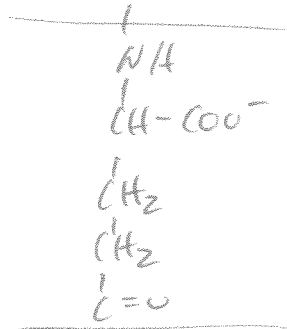 NH
CH-COO⁻
CH₂
CH₂
C=O